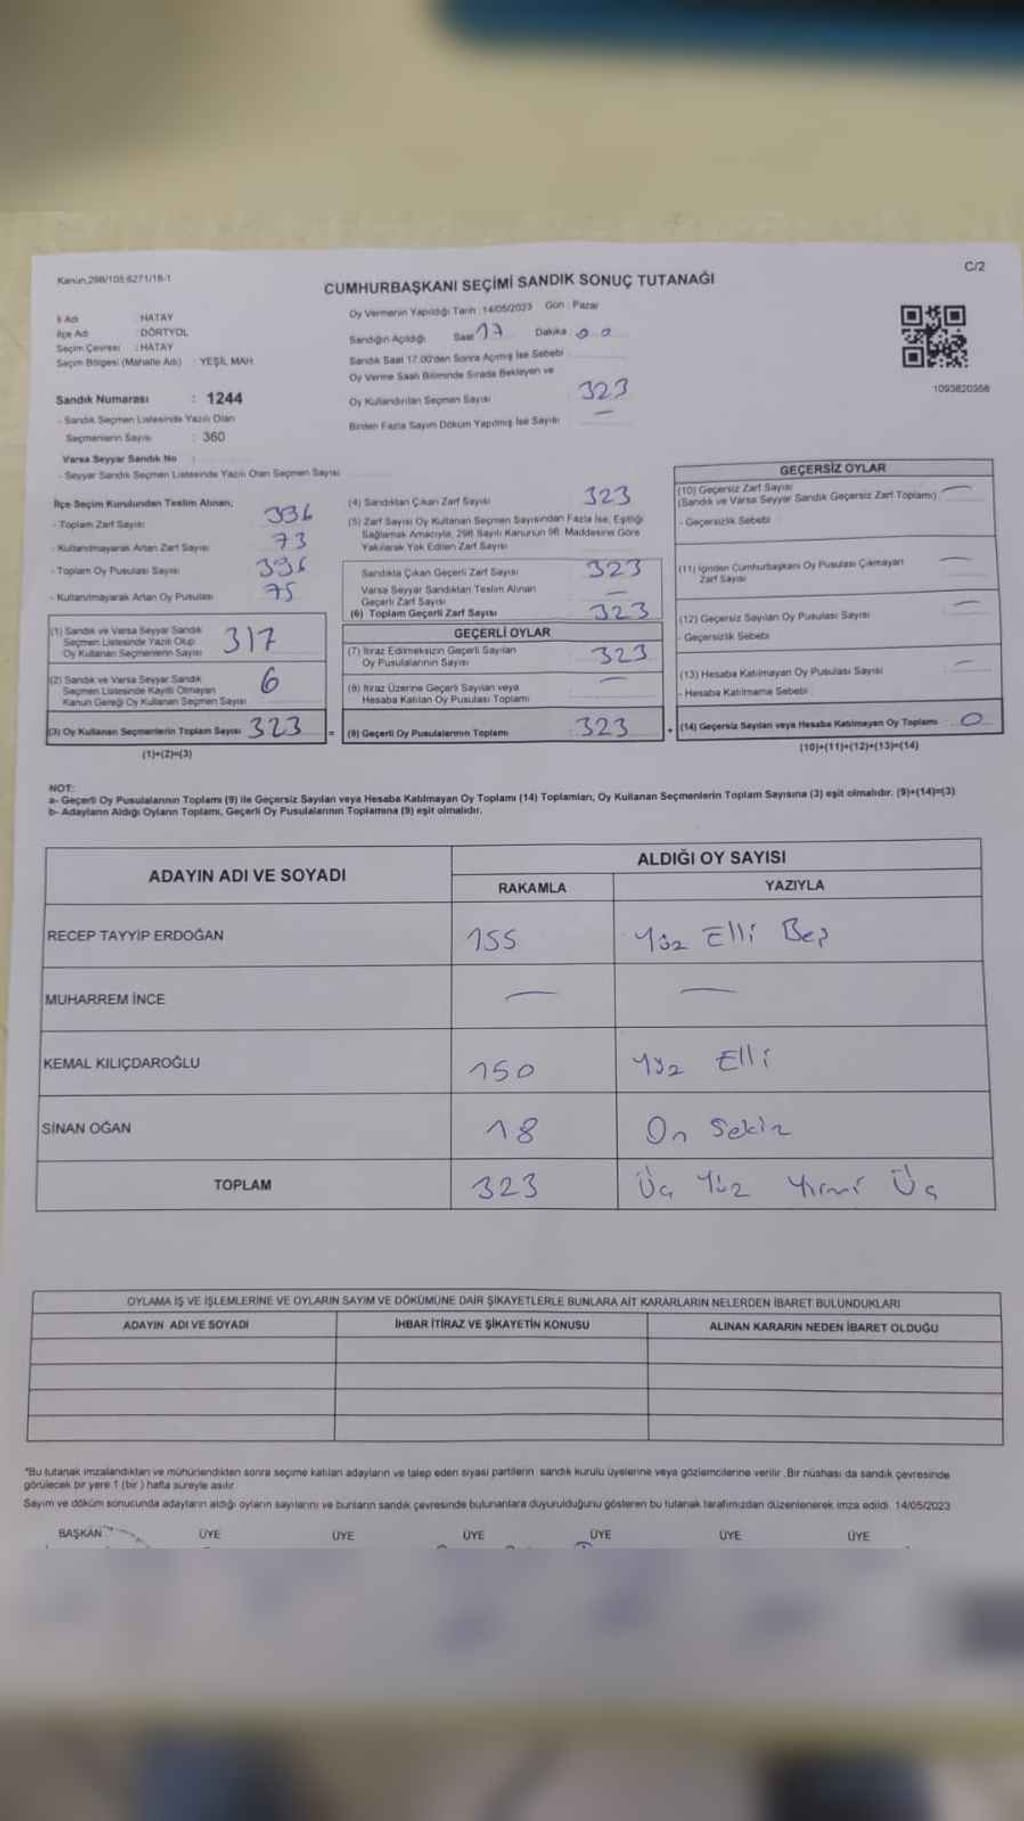 Kanun.298/105.6271/18-1
C/2
CUMHURBAŞKANI SEÇİMİ SANDIK SONUÇ TUTANAĞI
İl Adı : HATAY
İlçe Adı : DÖRTYOL
Seçim Çevresi : HATAY
Seçim Bölgesi (Mahalle Adı) : YEŞİL MAH
Sandık Numarası : 1244
- Sandık Seçmen Listesinde Yazılı Olan
Seçmenlerin Sayısı : 360
Varsa Seyyar Sandık No :
- Seyyar Sandık Seçmen Listesinde Yazılı Olan Seçmen Sayısı
Oy Vermenin Yapıldığı Tarih : 14/05/2023 Gün : Pazar
Sandığın Açıldığı Saat 17 Dakika : 00
Sandık Saat 17.00'den Sonra Açılmış İse Sebebi
Oy Verme Saati Bitiminde Sırada Bekleyen ve
Oy Kullandırılan Seçmen Sayısı 323
Birden Fazla Sayım Döküm Yapılmış İse Sayısı —
1093820356
İlçe Seçim Kurulundan Teslim Alınan;
- Toplam Zarf Sayısı 336
- Kullanılmayarak Artan Zarf Sayısı 73
- Toplam Oy Pusulası Sayısı 336
- Kullanılmayarak Artan Oy Pusulası 75
(1) Sandık ve Varsa Seyyar Sandık
Seçmen Listesinde Yazılı Olup
Oy Kullanan Seçmenlerin Sayısı 317
(2) Sandık ve Varsa Seyyar Sandık
Seçmen Listesinde Kayıtlı Olmayan
Kanun Gereği Oy Kullanan Seçmen Sayısı 6
(3) Oy Kullanan Seçmenlerin Toplam Sayısı 323 =
(1)+(2)=(3)
(4) Sandıktan Çıkan Zarf Sayısı 323
(5) Zarf Sayısı Oy Kullanan Seçmen Sayısından Fazla İse, Eşitliği
Sağlamak Amacıyla, 298 Sayılı Kanunun 98. Maddesine Göre
Yakılarak Yok Edilen Zarf Sayısı
Sandıkta Çıkan Geçerli Zarf Sayısı 323
Varsa Seyyar Sandıktan Teslim Alınan
Geçerli Zarf Sayısı —
(6) Toplam Geçerli Zarf Sayısı 323
GEÇERLİ OYLAR
(7) İtiraz Edilmeksizin Geçerli Sayılan
Oy Pusulalarının Sayısı 323
(8) İtiraz Üzerine Geçerli Sayılan veya
Hesaba Katılan Oy Pusulası Toplamı —
(9) Geçerli Oy Pusulalarının Toplamı 323 +
GEÇERSİZ OYLAR
(10) Geçersiz Zarf Sayısı
(Sandık ve Varsa Seyyar Sandık Geçersiz Zarf Toplamı) —
- Geçersizlik Sebebi
(11) İçinden Cumhurbaşkanı Oy Pusulası Çıkmayan
Zarf Sayısı —
(12) Geçersiz Sayılan Oy Pusulası Sayısı —
- Geçersizlik Sebebi
(13) Hesaba Katılmayan Oy Pusulası Sayısı —
- Hesaba Katılmama Sebebi
(14) Geçersiz Sayılan veya Hesaba Katılmayan Oy Toplamı 0
(10)+(11)+(12)+(13)=(14)
NOT:
a- Geçerli Oy Pusulalarının Toplamı (9) ile Geçersiz Sayılan veya Hesaba Katılmayan Oy Toplamı (14) Toplamları, Oy Kullanan Seçmenlerin Toplam Sayısına (3) eşit olmalıdır. (9)+(14)=(3)
b- Adayların Aldığı Oyların Toplamı, Geçerli Oy Pusulalarının Toplamına (9) eşit olmalıdır.
ADAYIN ADI VE SOYADI
ALDIĞI OY SAYISI
RAKAMLA YAZIYLA
RECEP TAYYİP ERDOĞAN 155 Yüz Elli Beş
MUHARREM İNCE — —
KEMAL KILIÇDAROĞLU 150 Yüz Elli
SİNAN OĞAN 18 On Sekiz
TOPLAM 323 Üç Yüz Yirmi Üç
OYLAMA İŞ VE İŞLEMLERİNE VE OYLARIN SAYIM VE DÖKÜMÜNE DAİR ŞİKAYETLERLE BUNLARA AİT KARARLARIN NELERDEN İBARET BULUNDUKLARI
ADAYIN ADI VE SOYADI İHBAR İTİRAZ VE ŞİKAYETİN KONUSU ALINAN KARARIN NEDEN İBARET OLDUĞU
*Bu tutanak imzalandıktan ve mühürlendikten sonra seçime katılan adayların ve talep eden siyasi partilerin sandık kurulu üyelerine veya gözlemcilerine verilir. Bir nüshası da sandık çevresinde
görülecek bir yere 1 (bir) hafta süreyle asılır.
Sayım ve döküm sonucunda adayların aldığı oyların sayılarını ve bunların sandık çevresinde bulunanlara duyurulduğunu gösteren bu tutanak tarafımızdan düzenlenerek imza edildi. 14/05/2023
BAŞKAN ÜYE ÜYE ÜYE ÜYE ÜYE ÜYE